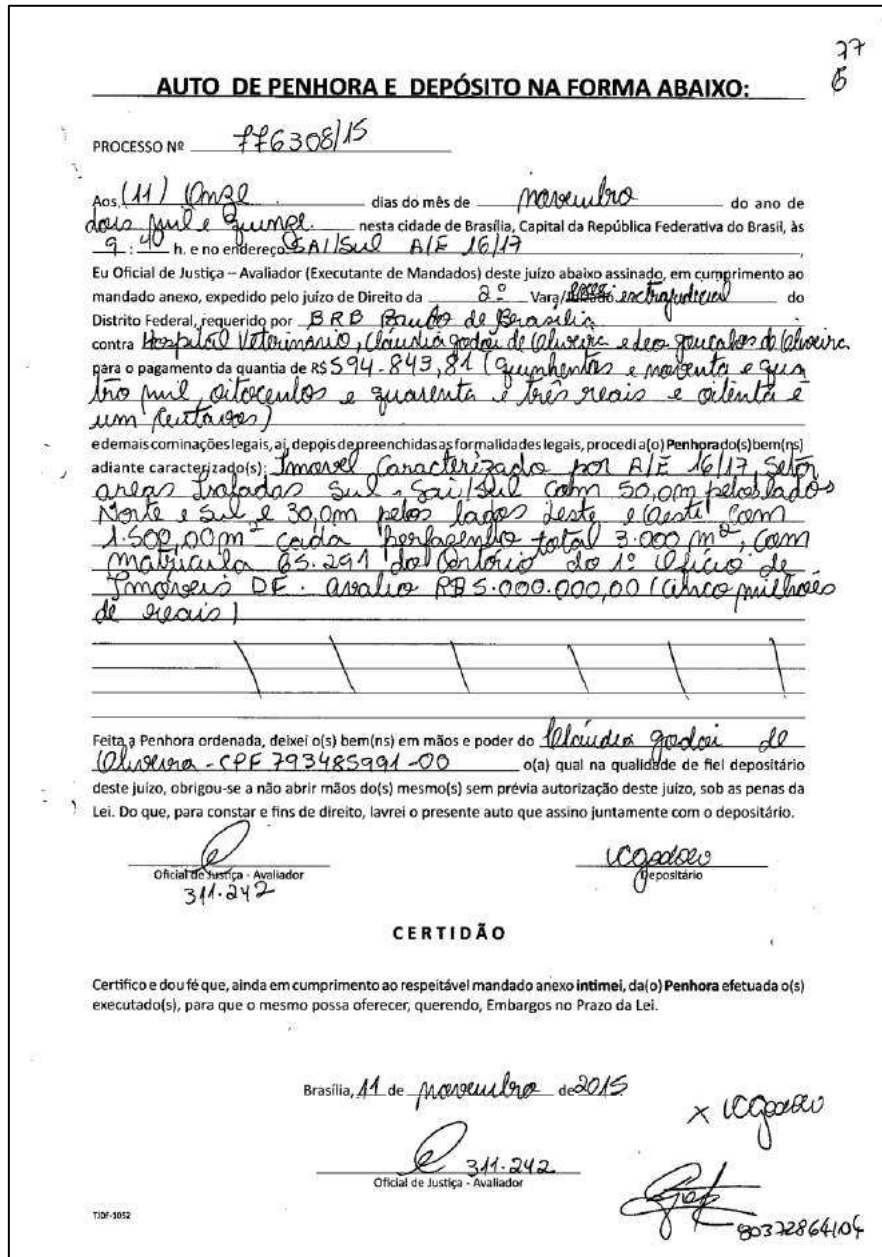 77
AUTO DE PENHORA E DEPÓSITO NA FORMA ABAIXO:
PROCESSO Nº 776308/15
Aos (11) Onze dias do mês de novembro do ano de
dois mil e Quinze. nesta cidade de Brasília, Capital da República Federativa do Brasil, às
9 : 40 h. e no endereço SAI/Sul A/E 16/17
Eu Oficial de Justiça – Avaliador (Executante de Mandados) deste juízo abaixo assinado, em cumprimento ao
mandado anexo, expedido pelo juízo de Direito da 2º Vara/ extrajudicial do
Distrito Federal, requerido por BRB Banco de Brasília
contra Hospital Veterinário, Cláudia godoi de Oliveira e Leo gonçalves de Oliveira
para o pagamento da quantia de R$ 594.843,81 (quinhentos e noventa e qua
tro mil, oitocentos e quarenta e três reais e oitenta e
um centavos)
e demais cominações legais, aí, depois de preenchidas as formalidades legais, procedi a(o) Penhora do(s) bem(ns)
adiante caracterizado(s): Imovel Caracterizado por A/E 16/17, Setor
areas Isoladas Sul - Sai/Sul com 50,0m pelos lados
Norte e Sul e 30,0m pelos lados Leste e Oeste com
1.500,00m² cada perfazendo total 3.000 m², com
matrícula 65.291 do Cartório do 1º Ofício de
Imóveis DF. avalio R$ 5.000.000,00 (cinco milhões
de reais)
Feita a Penhora ordenada, deixei o(s) bem(ns) em mãos e poder do Cláudia godoi de
Oliveira - CPF 793485991-00 o(a) qual na qualidade de fiel depositário
deste juízo, obrigou-se a não abrir mãos do(s) mesmo(s) sem prévia autorização deste juízo, sob as penas da
Lei. Do que, para constar e fins de direito, lavrei o presente auto que assino juntamente com o depositário.
Oficial de Justiça - Avaliador
311.242
Depositário
CERTIDÃO
Certifico e dou fé que, ainda em cumprimento ao respeitável mandado anexo intimei, da(o) Penhora efetuada o(s)
executado(s), para que o mesmo possa oferecer, querendo, Embargos no Prazo da Lei.
Brasília, 11 de novembro de 2015
X
311.242
Oficial de Justiça - Avaliador
80372864104
TJDF-1052